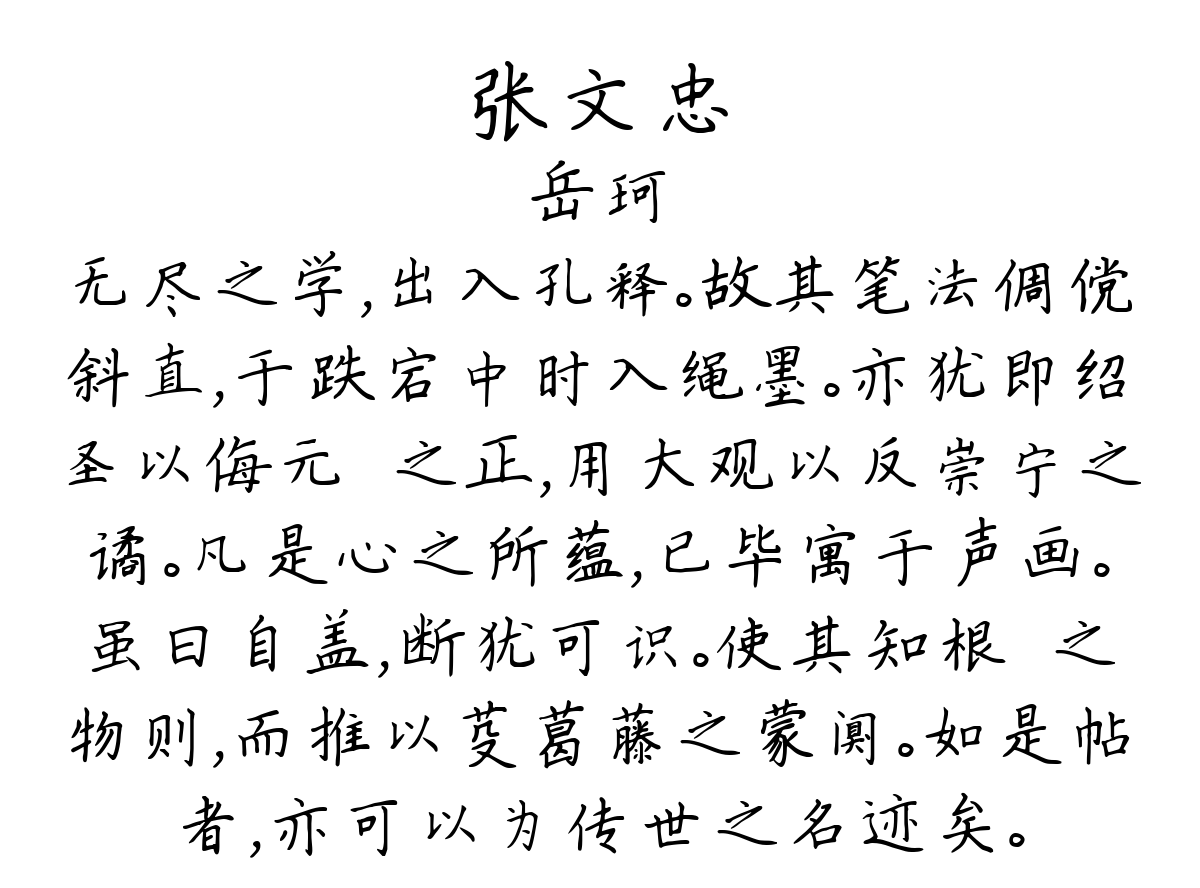 张文忠
岳珂
无尽之学,出入孔释。故其笔法倜傥
斜直,于跌宕中时入绳墨。亦犹即绍
圣以侮元 之正,用大观以反崇宁之
谲。凡是心之所蕴,已毕寓于声画。
虽曰自盖,断犹可识。使其知根 之
物则,而推以芟葛藤之蒙阒。如是帖
者,亦可以为传世之名迹矣。